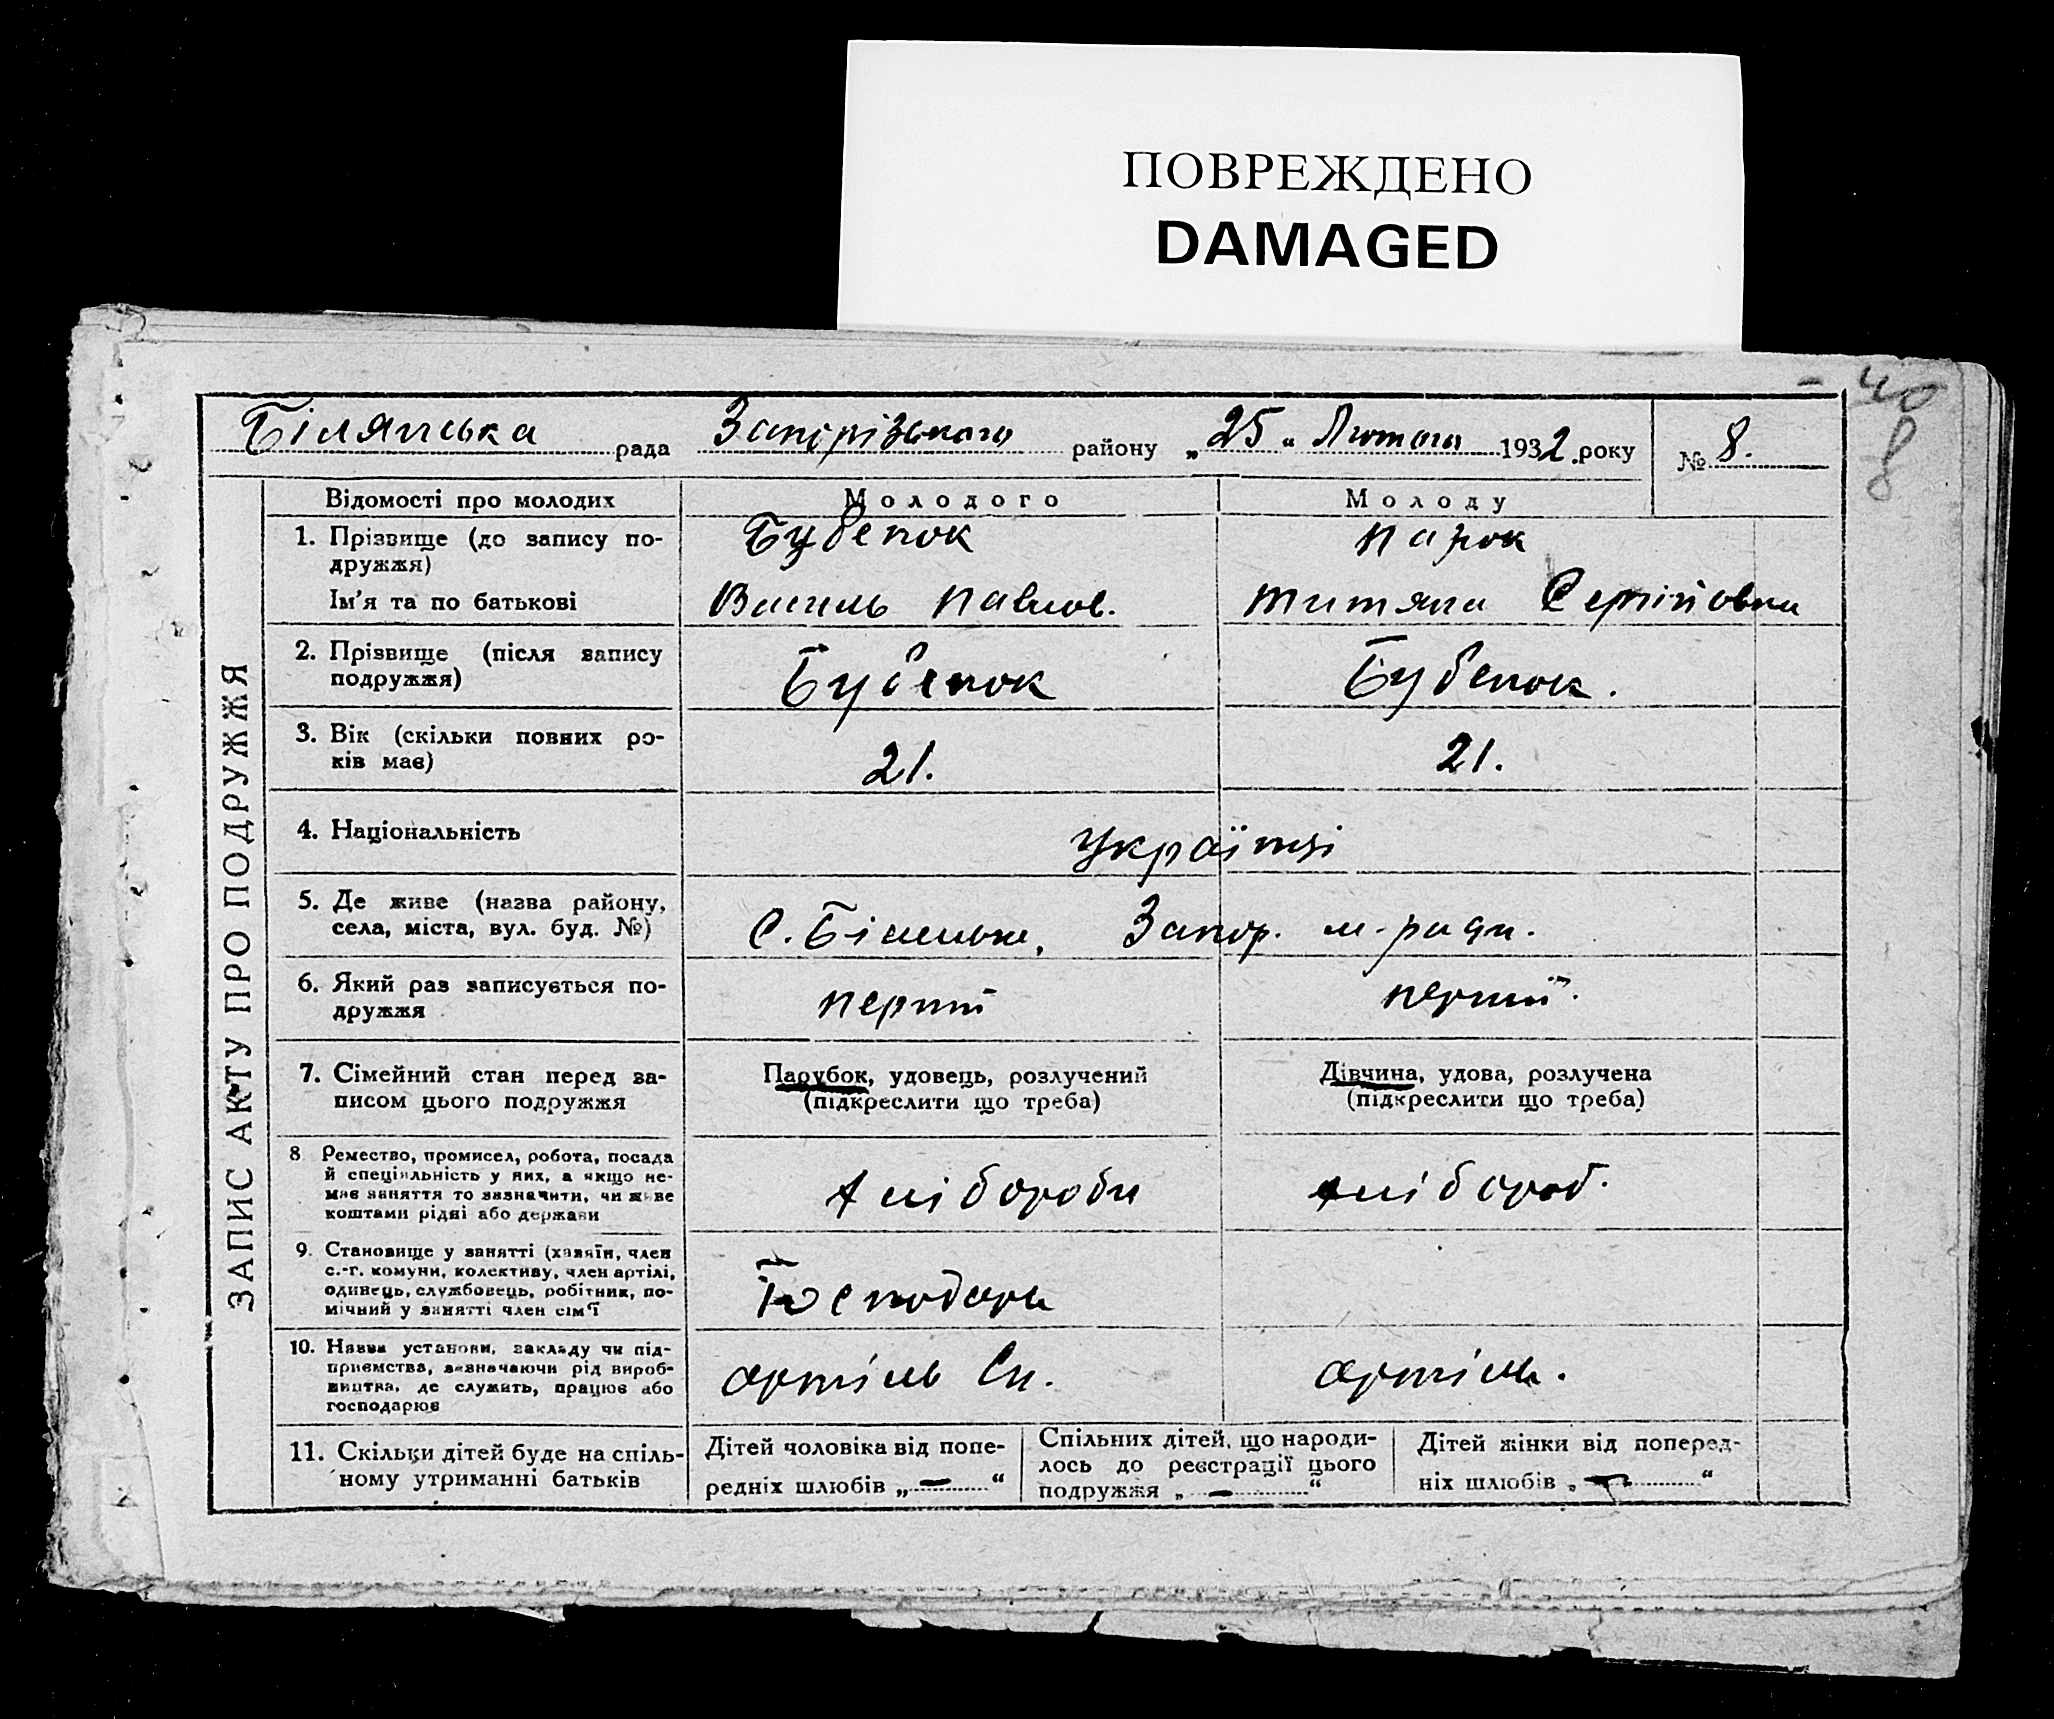 ПОВРЕЖДЕНО
DAMAGED
- 40
8
Білянська рада Запорізького району „25“ Лютого 1932 року № 8.
ЗАПИС АКТУ ПРО ПОДРУЖЖЯ
Відомості про молодих Молодого Молоду
1. Прізвище (до запису по-
дружжя) Бубенок Парок
Ім'я та по батькові Василь Павлов. Титяна Сергійовна
2. Прізвище (після запису
подружжя) Бубенок Бубенок.
3. Вік (скільки повних ро-
ків має) 21. 21.
4. Національність Українці
5. Де живе (назва району,
села, міста, вул. буд. №) С. Біленьке, Запор. м-ради.
6. Який раз записується по-
дружжя перший перший.
7. Сімейний стан перед за-
писом цього подружжя
Парубок, удовець, розлучений
(підкреслити що треба)
Дівчина, удова, розлучена
(підкреслити що треба)
8 Ремество, промисел, робота, посада
й спеціяльність у них, а якщо не-
має заняття то зазначити, чи живе
коштами рідні або держави
хліборобн хлібороб.
9. Становище у занятті (хазяїн, член
с.-г. комуни, колективу, член артілі,
одинець, службовець, робітник, по-
мічний у занятті член сім'ї
Господарь
10. Назва установи, закладу чи під-
приємства, зазначаючи рід вироб-
ництва, де служить, працює або
господарює
артіль артіль.
11. Скільки дітей буде на спіль-
ному утриманні батьків
Дітей чоловіка від попе-
редніх шлюбів „ — “
Спільних дітей, що народи-
лось до реєстрації цього
подружжя „ — “
Дітей жінки від поперед-
ніх шлюбів „ — “